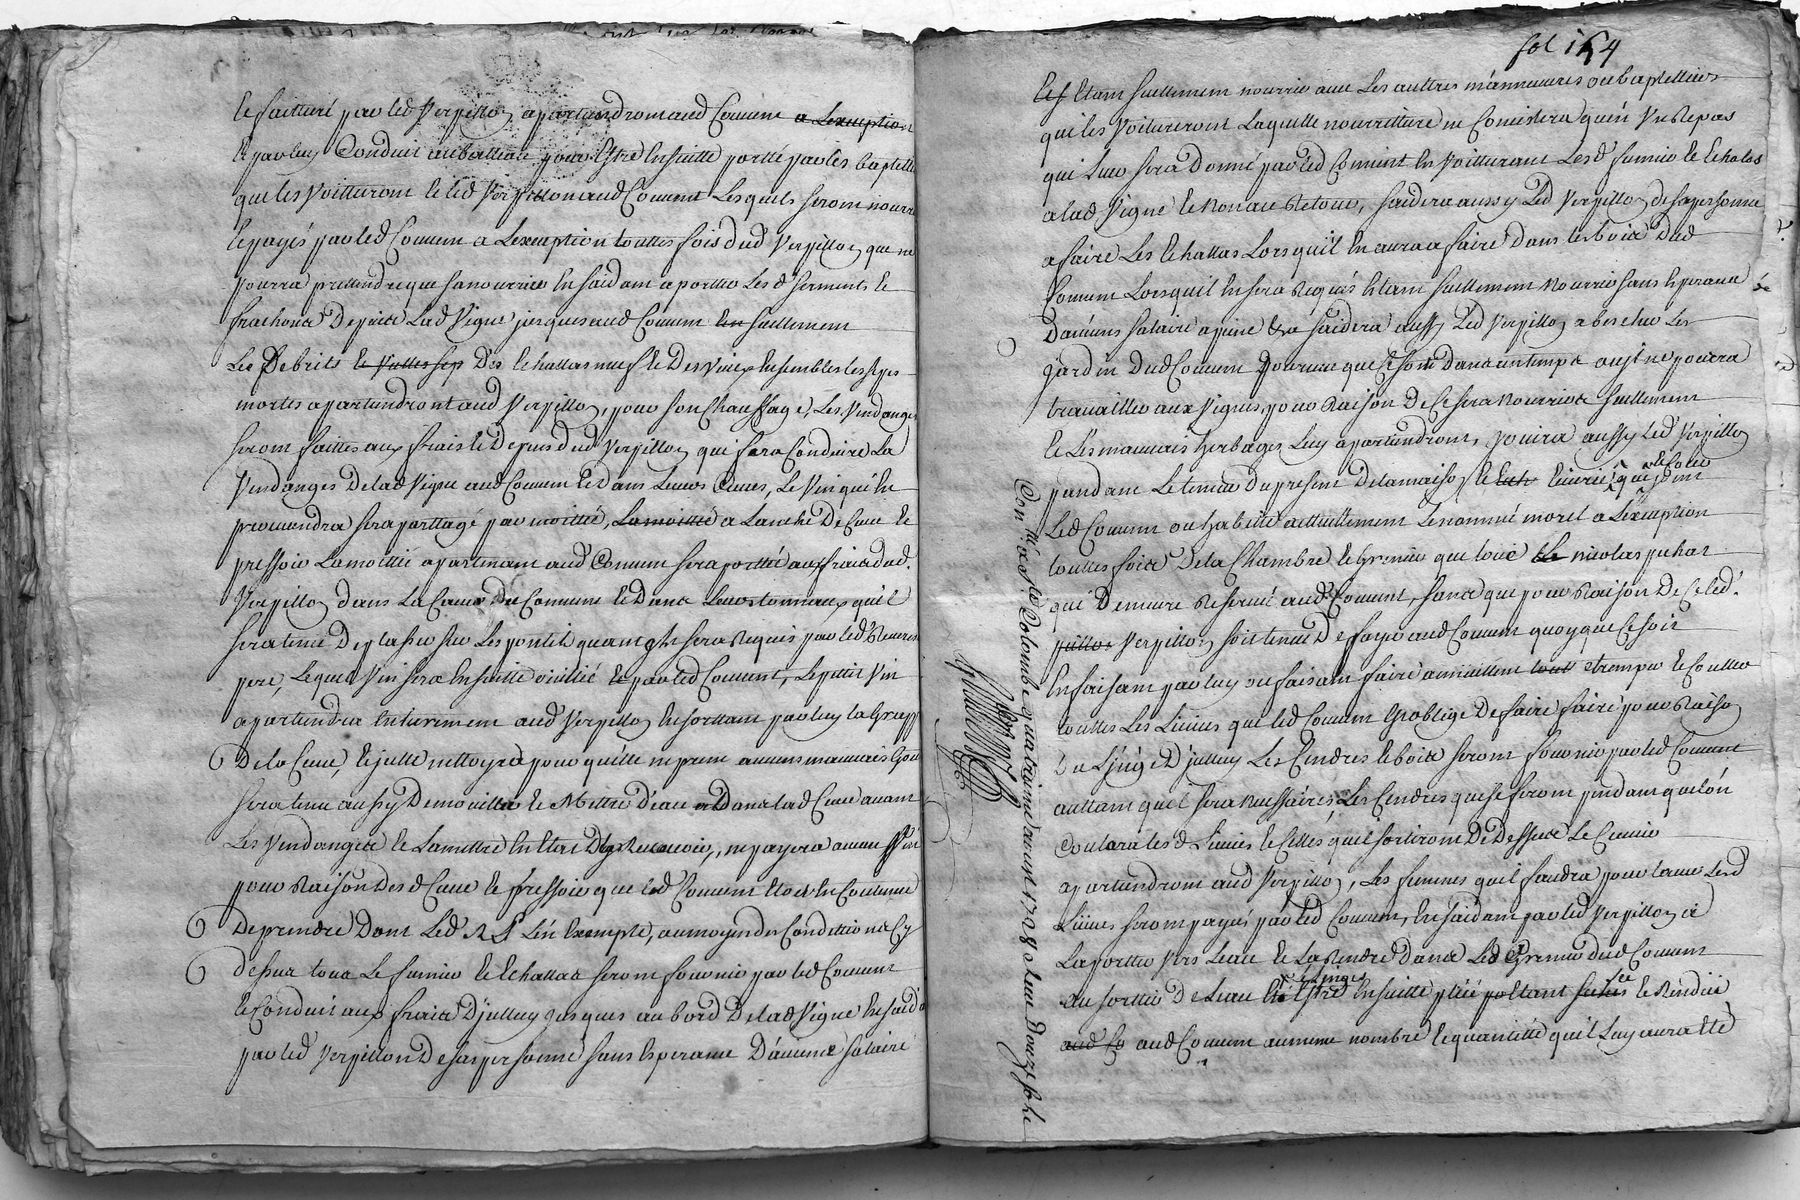 le facturé par led Verpillon apartiendront aud Couvent a Lexeuption
et par luy Conduit au batteau pour Estre Ensuitte portté par les
qui les Voitturont le led Verpillon aud Couvent Lesquels seront nourri
et payés par led Couvent a Lexeuption touttes fois dud Verpillon que ne
pourra prettendre que sa nourriee En saidant a porttee Lesd serments et
depuice Lad Vigne jusques aud Couvent seullement
Les Debrits Des Echallas neuf et Des Vieux Ensembles les seps
mortes apartiendront aud Verpillon, pour son Chauffage, Les Vendange
seront faittes aux frais et Depens dud Verpillon qui fera Conduire La
Vendanges De lad Vigne aud Couvent et Dans Leurs Cuves, Le Vin qui En
proviendra sera parttagé par moittié, La moittié a Lanche De Cuve et
pressoir La moittié apartenant aud Couvent sera porttée aux fraice dud.
Verpillon dans La Cave Du Couvent et Dance Leurs tonneaux quil
sera tenu De placer sur Les pontit quan En sera Requis par led Reverend
pere, Lequel Vin sera Ensuitte par led Couvent, Le petit Vin
apartiendra Entierement aud Verpillon En sorttant par luy la Grapp
De la Cuve, et jcelle nettoyra pour quelle ne prene aucuns mauvais Gou
sera tenu aussy De mouiller et Mettre D'eau Dans lad Cuve avant
Les Vendangea et La mettre En Etat De Recevoir, ne payera aucun Vin
pour Raison Desd Cuve et pressoir que led Couvent Est En Coutume
De prendre Dont Led R P Len Exempte, aumoyen des Condittions Cy
dessus tous Le fumier et Echallas seront fournie par led Couvent
et Conduit aux fraice D'jcelluy jusques au bord De lad Vigne En said
par led Verpillon De sa personne sans Esperance D'aucune salaire
fol 154
Etant seullement nourrie avec Les auttres manneuvres ou
qui les Voitureront Laquelle nourritture ne Consistera quén Un Repas
qui Leur sera Donné par led Couvent En Voitturant Lesd fumier et Echalas
a lad Vigne et Non au Retour, saidera aussy Led Verpillon de sa personne
a faire Les Echallas Lors quil En aura a faire Dans les boice Dud
Couvent Lorsquil En sera Requis Etant seullement Nourrie sans Esperance
D'aucuns salaire a peine saidera aussy Led Verpillon a becher Les
jardin Dud Couvent pourveu que Ce soit Dans un temps ou jl ne pourra
travailler aux Vignes, pour Raison De Ce sera Nourrice seullement
et Les mauvais herbages Luy apartiendront, jouira aussy Led Verpillon
pandant Le tenue Du present De la maison et Ecurie que tient
Led Couvent ou habitte actuellement Le nommé morel a Lexeuption
touttes foice De la Chambre et Grenier que loue nicolas
qui Demeure Reservé aud Couvent, sance que pour Raison De Ce led.
Verpillon soit tenu De paye aud Couvent quoy que Ce soit
En faisant par luy ou faisant faire annuellement tremper et Couller
touttes Les Lissives que led Couvent Est oblige De faire faire pour Raison
Du Linge D'jcelluy Les Cendres et boice seront fournie par led Couvent
auttant quil sera Nécessaires Les Cendres que se feront pendant quelon
Coulera lesd Lissives et Celles qui sortiront De Dessuce Le Cuvier
apartiendront aud Verpillon, Les femmes quil faudra pour laver Lesd
Lissives seront payes par led Couvent, En saidant par led Verpillon a
La portter Vers Leau et La Rendre Dance Led Grenier dud Couvent
au sorttir De Leau Le Linge Estre Ensuitte pliée et Rendüe
aud Couvent au meme nombre et quantitté quil Luy aura Eté
Con.tlé a St. Colombe quatrieme aoust 1728 Receu Douze sols